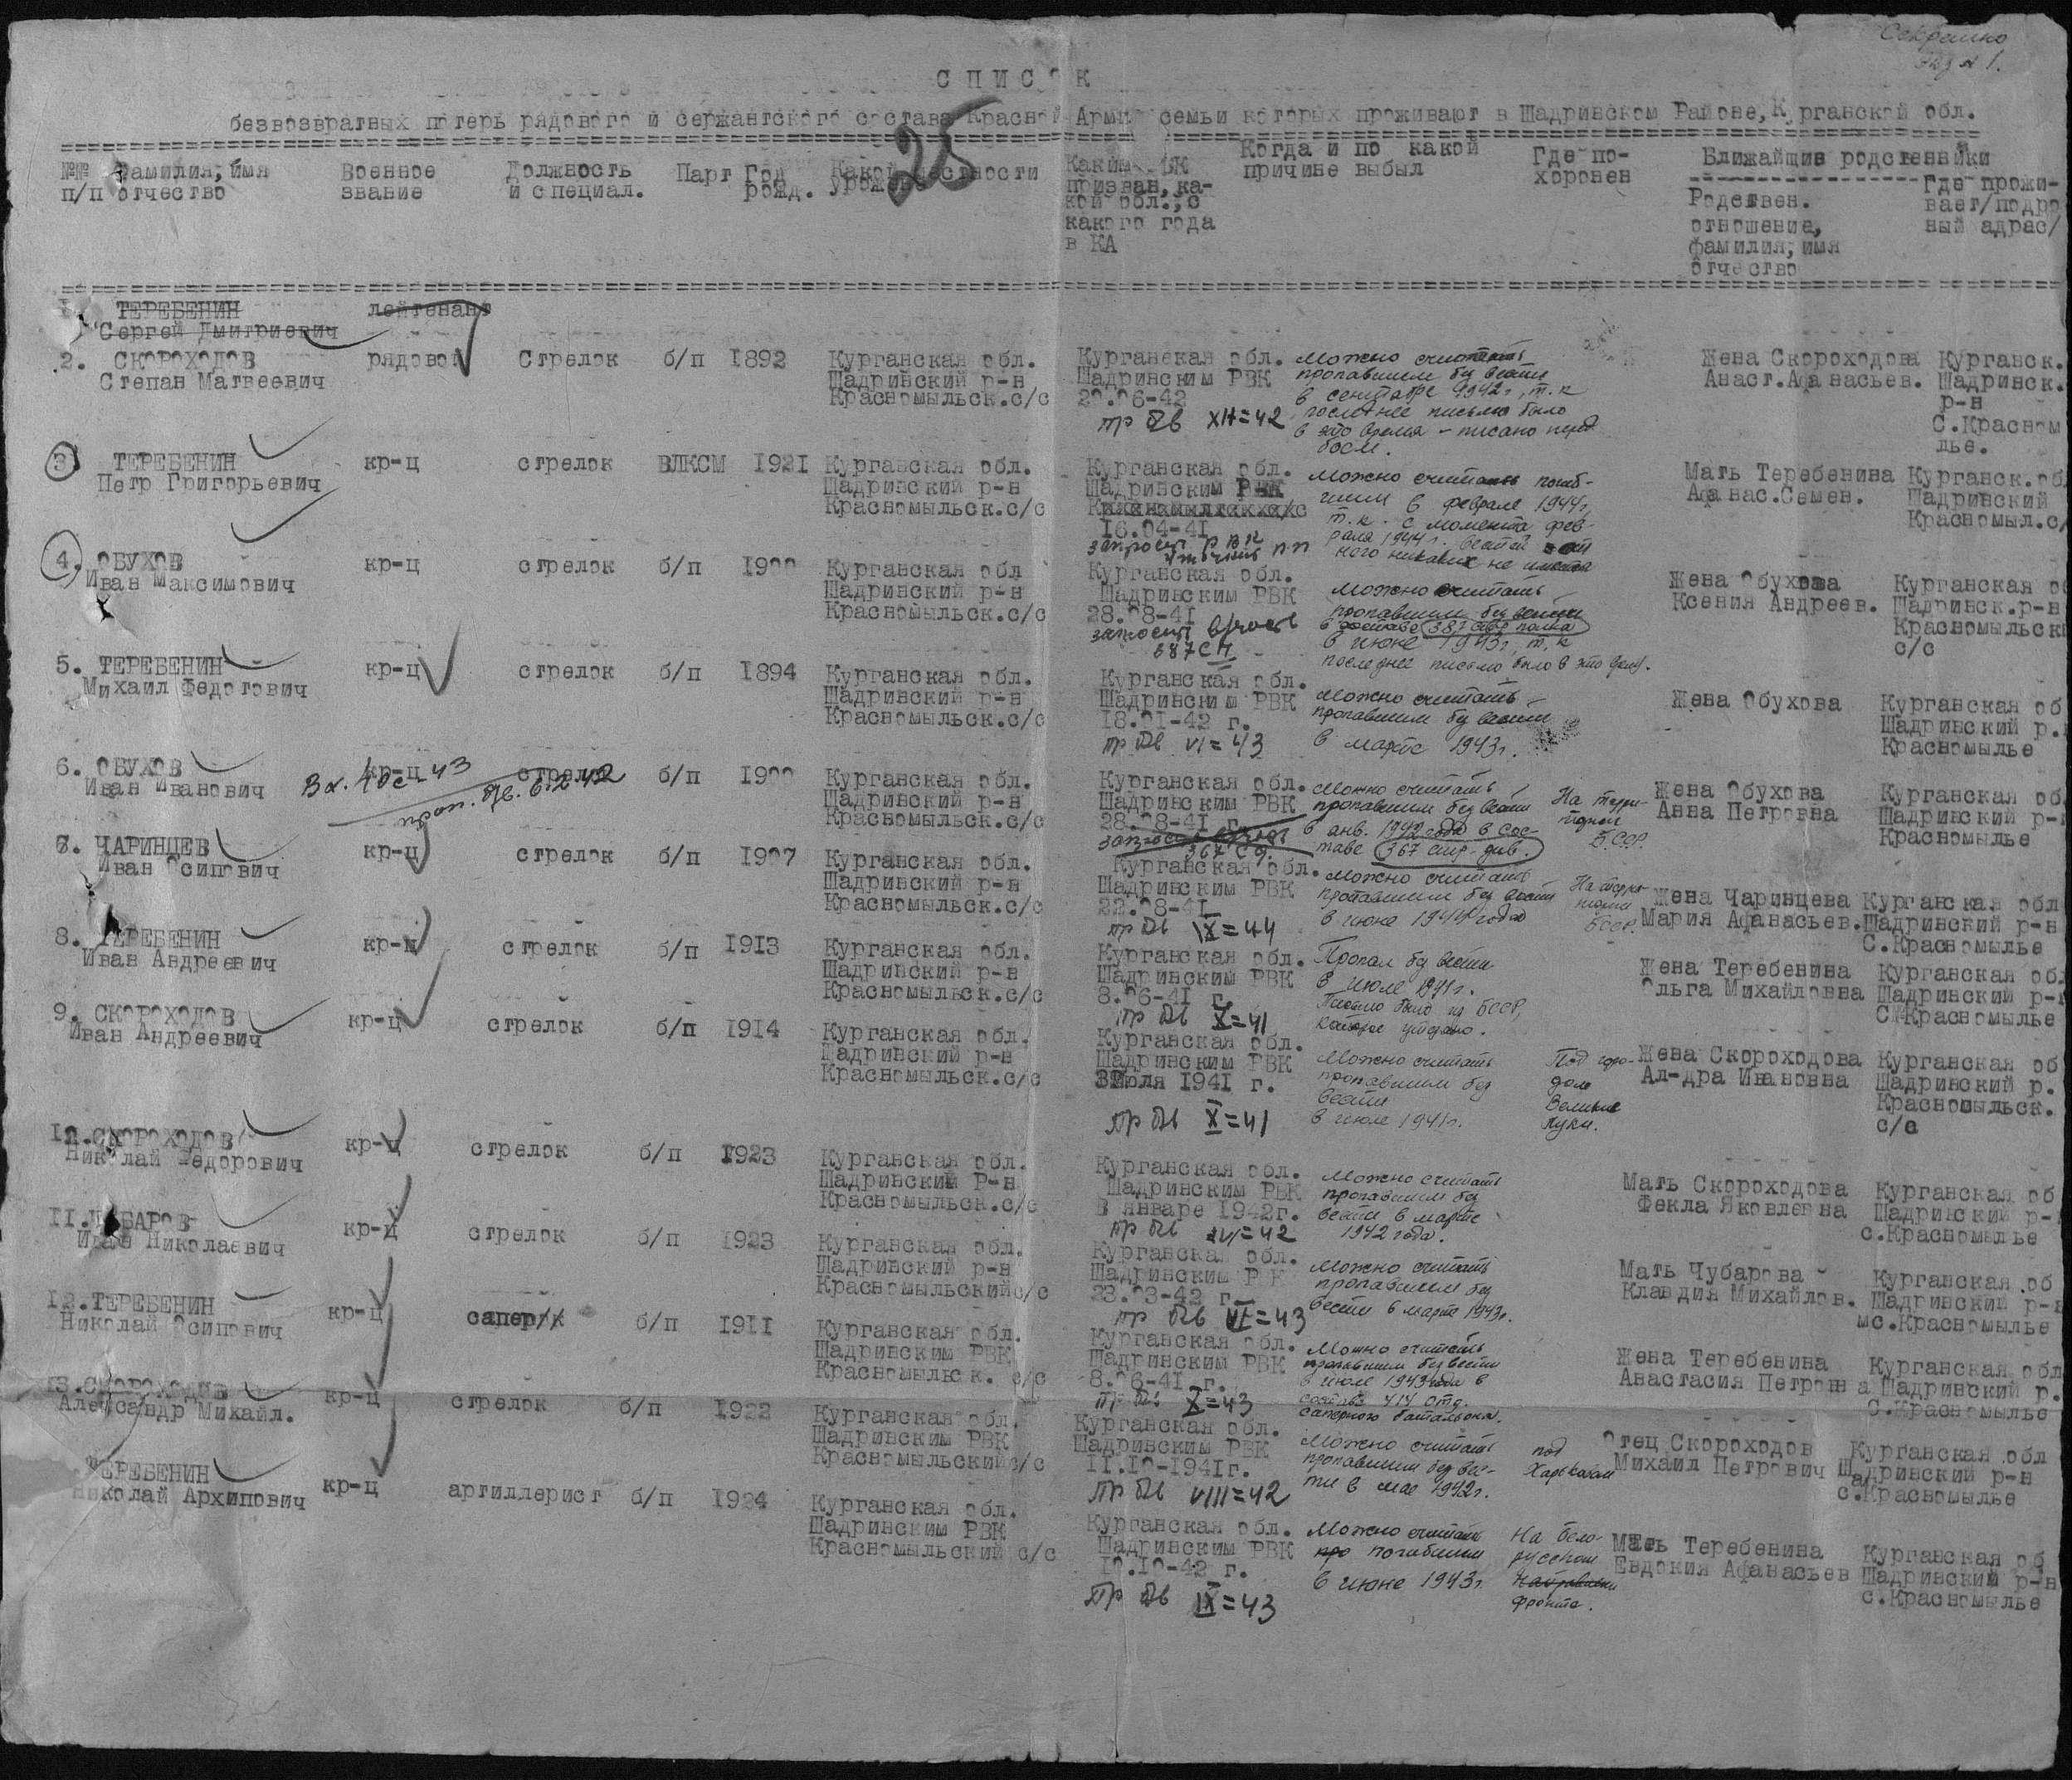 Секретно
СПИСОК
безвозвратных потерь рядового и сержантского состава Красной Армии семьи которых проживают в Шадринском Районе, Курганской обл.
25
№№ п/п
Фамилия, имя отчество
Военное звание
Должность и специал.
Парт
Год рожд.
Какой местности
Каким РВК призван, какой обл., с какого года в КА
Когда и по какой причине выбыл
Где похоронен
Ближайшие родственники
Родствен. отношение, фамилия, имя отчество
Где проживает/подробный адрес/
ТЕРЕБЕНИН лейтенант
Сергей Дмитриевич
2. СКОРОХОДОВ рядовой Стрелок б/п 1892 Курганская обл. Курганская обл. Можно считать Жена Скороходова Курганск.
Степан Матвеевич Шадринский р-н Шадринским РВК пропавшим без вести Анаст.Афанасьев. Шадринск.
Красномыльск.с/с 20.06-42 в сентябре 1942г, т.к р-н
пр бв XII=42 последнее письмо было С.Красном
в это время - писано перед лье.
боем.
3 ТЕРЕБЕНИН кр-ц стрелок ВЛКСМ 1921 Курганская обл. Курганская обл. Можно считать погиб- Мать Теребенина Курганск.об
Петр Григорьевич Шадринский р-н Шадринским РВК шим в феврале 1944г, Афанас.Семен. Шадринский
Красномыльск.с/с т.к. с момента фев- Красномыл.с/
16.04-41 раля 1944г. вестей от
запросит РВК него никаких не имеется
4. ОБУХОВ кр-ц стрелок б/п 1900 Курганская обл Курганская обл. Можно считать Жена Обухова Курганская о
Иван Максимович Шадринский р-н Шадринским РВК пропавшим без вести Ксения Андреев. Шадринск.р-н
Красномыльск.с/с 28.08-41 в составе 387 стр полка Красномыльск
запросит в июне 1943г, т.к с/с
687 СП последнее письмо было в это время.
5. ТЕРЕБЕНИН кр-ц стрелок б/п 1894 Курганская обл. Курганская обл. Можно считать Жена Обухова Курганская об
Михаил Федотович Шадринский р-н Шадринским РВК пропавшим без вести Шадринский р.
Красномыльск.с/с 18.01-42 г. в марте 1943г. Красномылье
пр бв VI=43
6. ОБУХОВ кр-ц стрелок б/п 1900 Курганская обл. Курганская обл. Можно считать На терри- Жена Обухова Курганская об
Иван Иванович Шадринский р-н Шадринским РВК пропавшим без вести торией Анна Петровна Шадринский р-
Красномыльск.с/с 28.08-41 г. в янв. 1942 года в сос- БССР. Красномылье
367 сд. таве 367 стр. див.
7. ЧАРИНЦЕВ кр-ц стрелок б/п 1907 Курганская обл. Курганская обл. Можно считать Жена Чаринцева Курганская обл
Иван Осипович Шадринский р-н Шадринским РВК пропавшим без вести Мария Афанасьев. Шадринский р-н
Красномыльск.с/с 22.08-41 в июне 1944 года БССР. С.Красномылье
пр бв IX=44
8. ТЕРЕБЕНИН кр-ц стрелок б/п 1913 Курганская обл. Курганская обл. Пропал без вести Жена Теребенина Курганская об
Иван Андреевич Шадринский р-н Шадринским РВК в июле 1941г. Ольга Михайловна Шадринский р-
Красномыльск.с/с 8.06-41 г. Письмо было из БССР, С.Красномылье
пр бв X=41
9. СКОРОХОДОВ кр-ц стрелок б/п 1914 Курганская обл. Курганская обл. Можно считать Под горо- Жена Скороходова Курганская об
Иван Андреевич Шадринский р-н Шадринским РВК пропавшим без дом Ал-дра Ивановна Шадринский р.
Красномыльск.с/с Июля 1941 г. вести Великие Красномыльск.
пр бв X=41 в июле 1941г. Луки. с/с
10. СКОРОХОДОВ кр-ц стрелок б/п 1923 Курганская обл. Курганская обл. Можно считать Мать Скороходова Курганская об
Николай Федорович Шадринский Р-н Шадринским РВК пропавшим без Фекла Яковлевна Шадринский р-
Красномыльск.с/с В январе 1942г. вести в марте с.Красномылье
пр бв VI=42 1942 года.
11. ЧУБАРОВ кр-ц стрелок б/п 1923 Курганская обл. Курганская обл. Можно считать Мать Чубарова Курганская об
Иван Николаевич Шадринский р-н Шадринским РВК пропавшим без Клавдия Михайлов. Шадринский р-н
Красномыльский с/с 23.03-42 г. вести в марте 1943г. с.Красномылье
пр бв VI=43
12. ТЕРЕБЕНИН кр-ц сапер б/п 1911 Курганская обл. Курганская обл. Можно считать Жена Теребенина Курганская обл
Николай Осипович Шадринским РВК Шадринским РВК пропавшим без вести Анастасия Петровна Шадринский р.
Красномыльск. с/с 8.06-41 г. в июле 1943 года в С.Красномыльс
пр бв X=43 составе 414 отд.
саперного батальона.
13. СКОРОХОДОВ кр-ц стрелок б/п 1922 Курганская обл. Курганская обл. Можно считать под Отец Скороходов Курганская обл
Александр Михайл. Шадринским РВК Шадринским РВК пропавшим без вес- Харьковом Михаил Петрович Шадринский р-н
Красномыльский с/с 11.10-1941г. ти в мае 1942г. с.Красномылье
пр бв VIII=42
ТЕРЕБЕНИН кр-ц артиллерист б/п 1924 Курганская обл. Курганская обл. Можно считать На бело- Мать Теребенина Курганская об
Николай Архипович Шадринским РВК Шадринским РВК погибшим русском Евдокия Афанасьев Шадринский р-н
Красномыльский с/с 10.10-42 г. в июне 1943г. фронте. с.Красномылье
пр бв IX=43